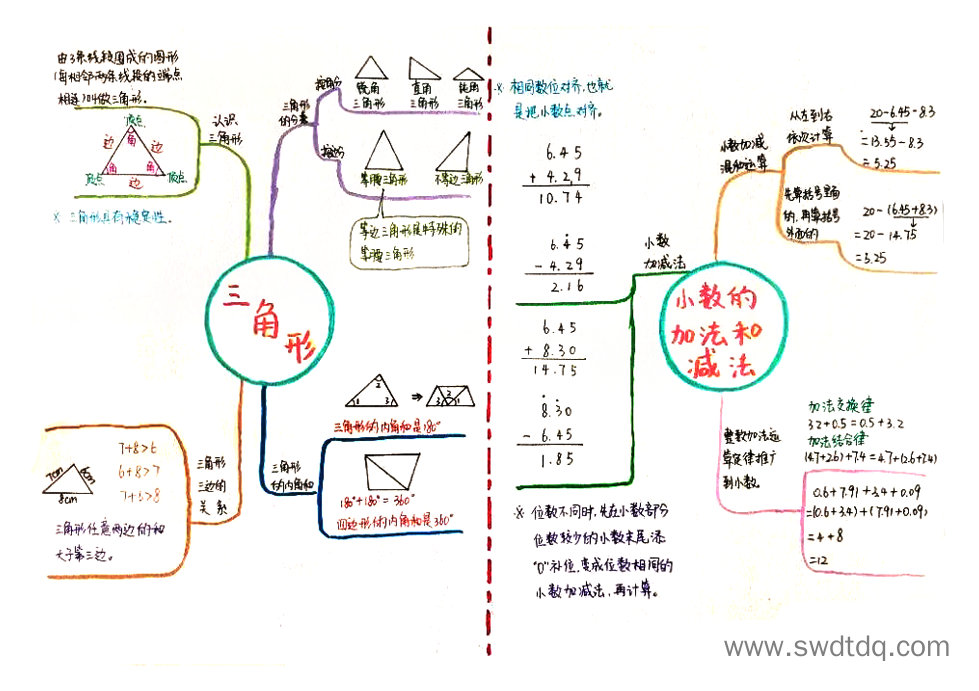 由3条线段围成的图形
(每相邻两条线段的端点
相连)叫做三角形。
认识
三角形
顶点
角
边
边
角
角
顶点
边
顶点
※ 三角形具有稳定性。
三角形
的分类
按角分
锐角
三角形
直角
三角形
钝角
三角形
按边分
等腰三角形
不等边三角形
等边三角形是特殊的
等腰三角形
三角形
7+8>6
6+8>7
7+6>8
7cm
6cm
8cm
三角形
三边的
关系
三角形任意两边的和
大于第三边。
三角形
的内角和
2
1
3
⇒
2
3
1
三角形的内角和是180°
180°+180°=360°
四边形的内角和是360°
※ 相同数位对齐,也就
是把小数点对齐。
6.45
+ 4.29
10.74
6.45
- 4.29
2.16
6.45
+ 8.30
14.75
8.30
- 6.45
1.85
※ 位数不同时,先在小数部分
位数较少的小数末尾添
"0"补位,变成位数相同的
小数加减法,再计算。
小数
加减法
小数的
加法和
减法
小数加减
混合运算
从左到右
依次计算
20-6.45-8.3
=13.55-8.3
=5.25
先算括号里面
的,再算括号
外面的
20-(6.45+8.3)
=20-14.75
=5.25
整数加法运
算定律推广
到小数。
加法交换律
3.2+0.5=0.5+3.2
加法结合律
(4.7+2.6)+7.4=4.7+(2.6+7.4)
0.6+7.91+3.4+0.09
=(0.6+3.4)+(7.91+0.09)
=4+8
=12
www.swdtdq.com